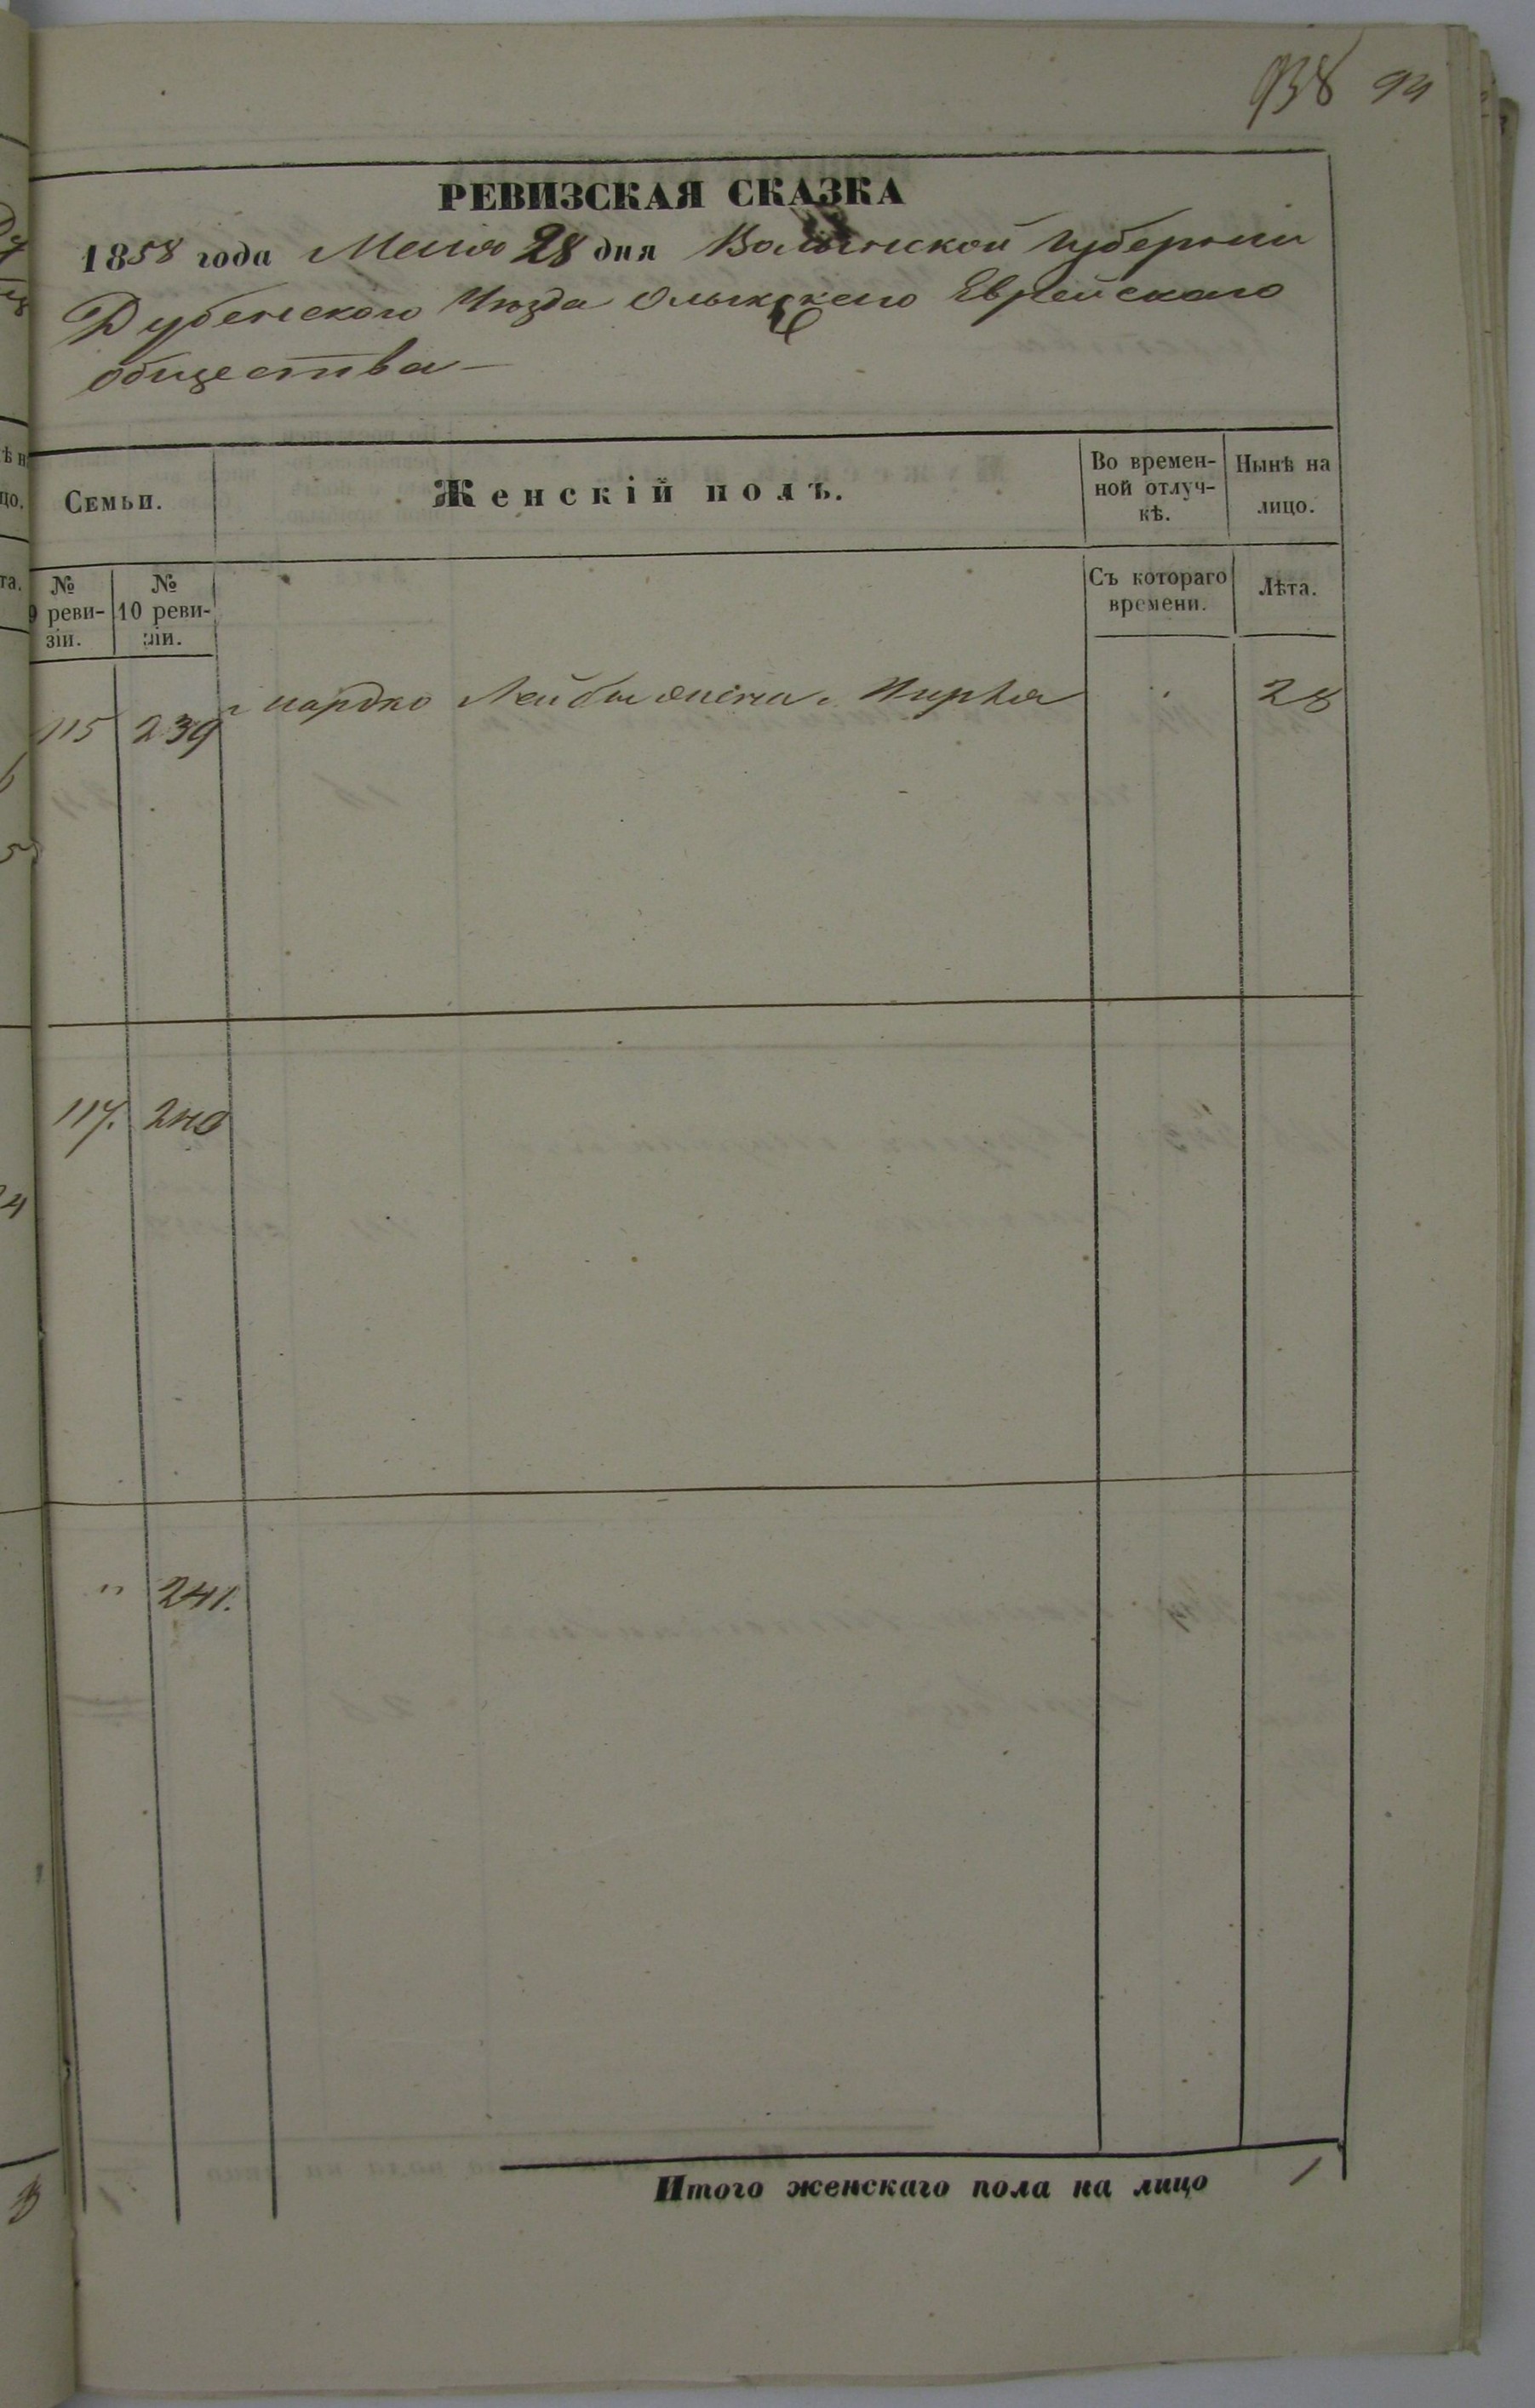 938 94
РЕВИЗСКАЯ СКАЗКА
1858 года Маия 28 дня Волынской Губернии
Дубенского Уѣзда Олыкского Еврейскаго
общества
Семьи.
Женскій полъ.
Во времен-
ной отлуч-
кѣ.
Нынѣ на
лицо.
№
9 реви-
зіи.
№
10 реви-
зіи.
Съ котораго
времени.
Лѣта.
115 239 Мардко Лейбы жена Мирля " 28
117. 240
" 241.
Итого женскаго пола на лицо 1